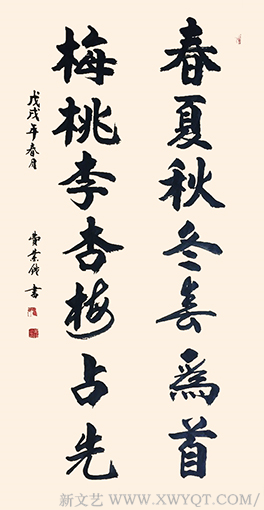 春夏秋冬春為首
梅桃李杏梅占先
戊戌年春月
書
新文艺 WWW.XWYQT.COM